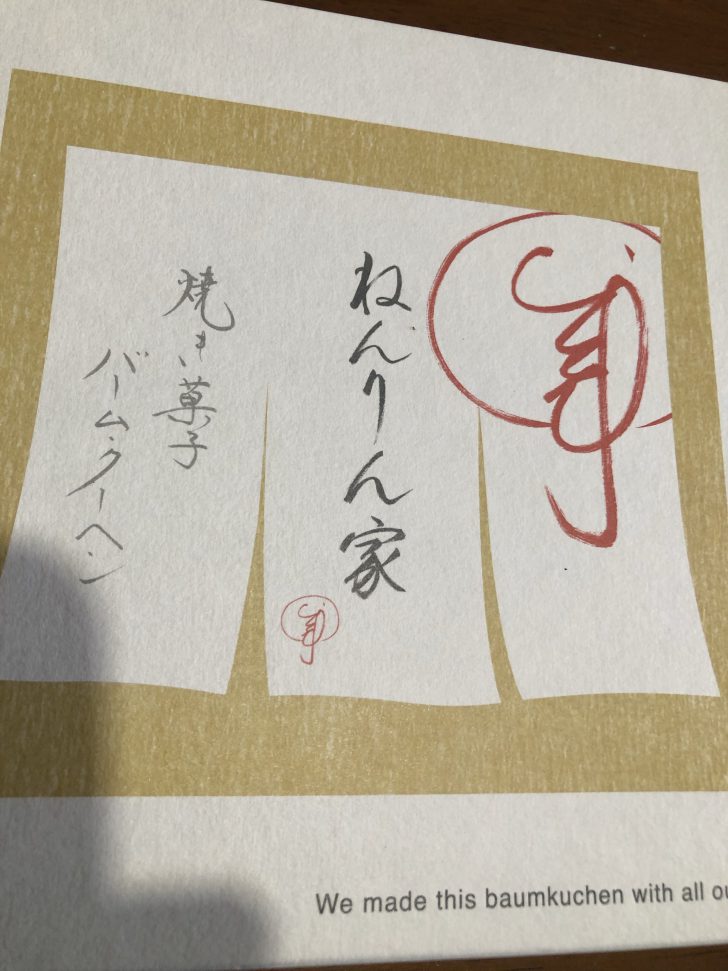 ねんりん家
焼き菓子
バームクーヘン
We made this baumkuchen with all